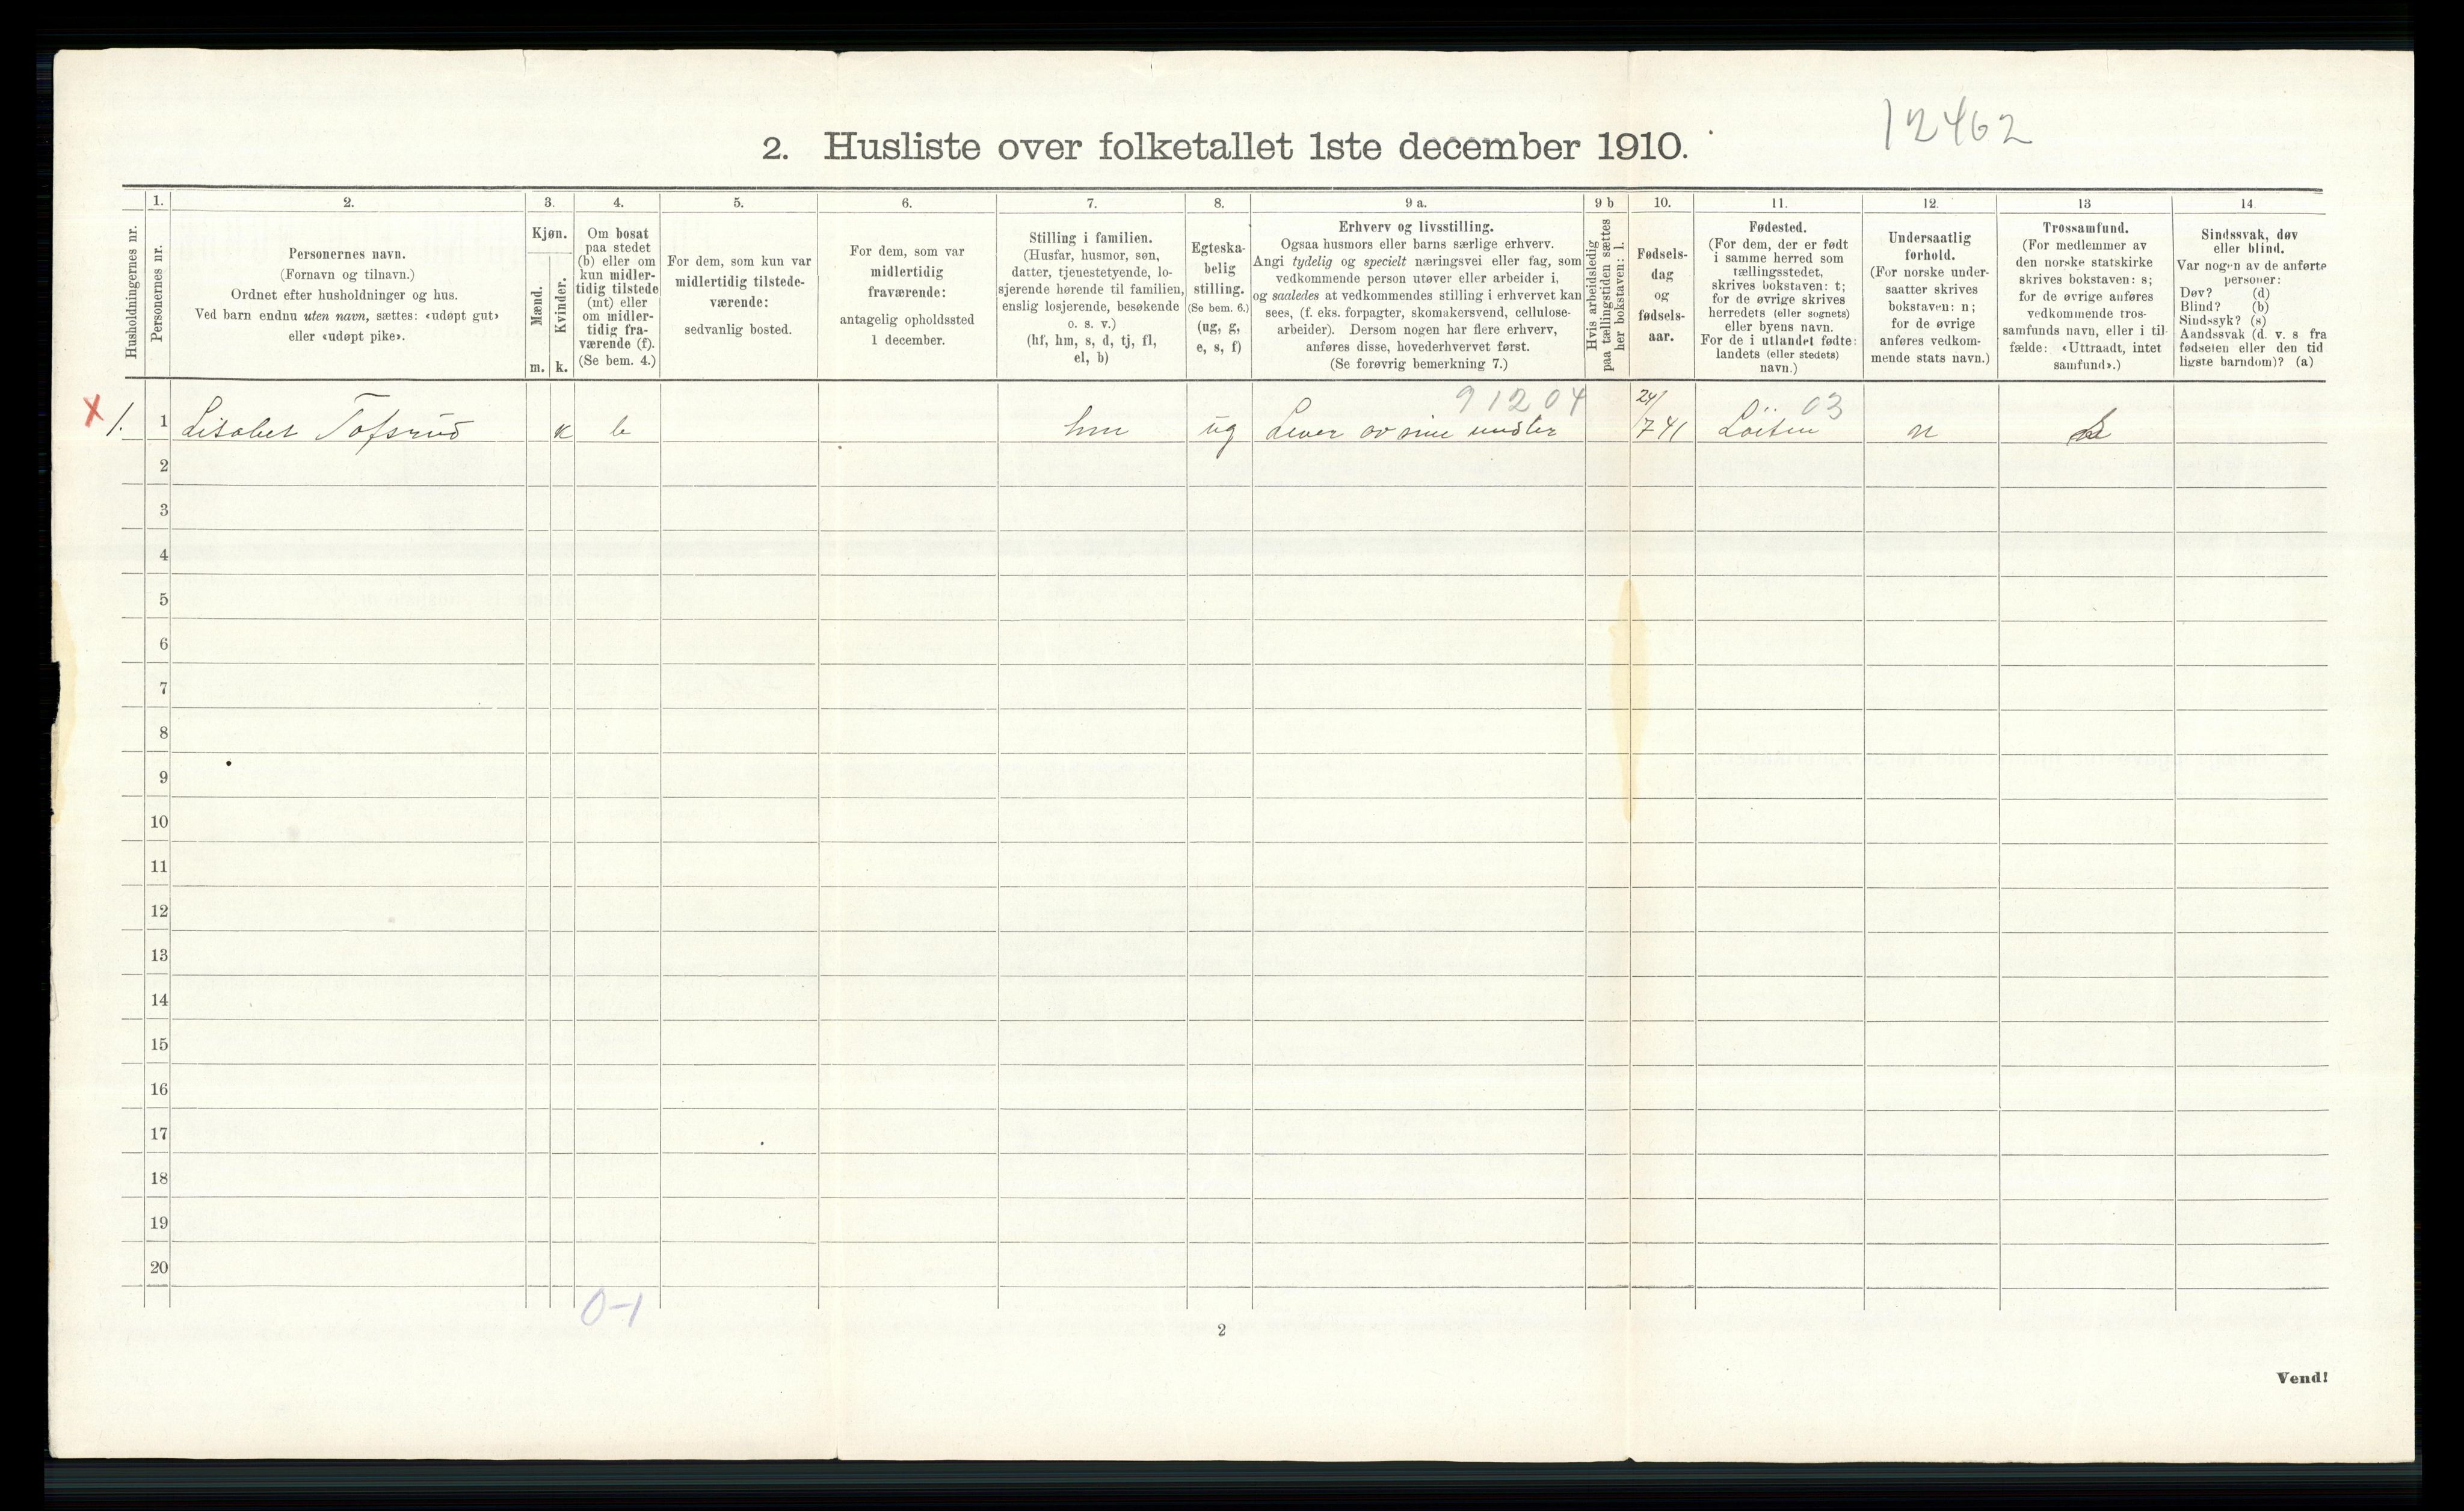 12462
2. Husliste over folketallet 1ste december 1910.
Husholdningernes nr.
1.
Personernes nr.
2.
Personernes navn.
(Fornavn og tilnavn.)
Ordnet efter husholdninger og hus.
Ved barn endnu uten navn, sættes: «udøpt gut»
eller «udøpt pike».
3.
Kjøn.
Mænd.
Kvinder.
m. k.
4.
Om bosat
paa stedet
(b) eller om
kun midler-
tidig tilstede
(mt) eller
om midler-
tidig fra-
værende (f).
(Se bem. 4.)
5.
For dem, som kun var
midlertidig tilstede-
værende:
sedvanlig bosted.
6.
For dem, som var
midlertidig
fraværende:
antagelig opholdssted
1 december.
7.
Stilling i familien.
(Husfar, husmor, søn,
datter, tjenestetyende, lo-
sjerende hørende til familien,
enslig losjerende, besøkende
o. s. v.)
(hf, hm, s, d, tj, fl,
el, b)
8.
Egteska-
belig
stilling.
(Se bem. 6.)
(ug, g,
e, s, f)
9 a.
Erhverv og livsstilling.
Ogsaa husmors eller barns særlige erhverv.
Angi tydelig og specielt næringsvei eller fag, som
vedkommende person utøver eller arbeider i,
og saaledes at vedkommendes stilling i erhvervet kan
sees, (f. eks. forpagter, skomakersvend, cellulose-
arbeider). Dersom nogen har flere erhverv,
anføres disse, hovederhvervet først.
(Se forøvrig bemerkning 7.)
9 b
Hvis arbeidsledig
paa tællingstiden sættes
her bokstaven: l.
10.
Fødsels-
dag
og
fødsels-
aar.
11.
Fødested.
(For dem, der er født
i samme herred som
tællingsstedet,
skrives bokstaven: t;
for de øvrige skrives
herredets (eller sognets)
eller byens navn.
For de i utlandet fødte:
landets (eller stedets)
navn.)
12.
Undersaatlig
forhold.
(For norske under-
saatter skrives
bokstaven: n;
for de øvrige
anføres vedkom-
mende stats navn.)
13
Trossamfund.
(For medlemmer av
den norske statskirke
skrives bokstaven: s;
for de øvrige anføres
vedkommende tros-
samfunds navn, eller i til-
fælde: «Uttraadt, intet
samfund».)
14.
Sindssvak, døv
eller blind.
Var nogen av de anførte
personer:
Døv? (d)
Blind? (b)
Sindssyk? (s)
Aandssvak (d. v. s. fra
fødselen eller den tid-
ligste barndom)? (a)
91204 24/ 03
X 1. 1 Lisabet Tofsrud k b hm ug Lever av sine midler 7 41 Löiten n s
2
3
4
5
6
7
8
9
10
11
12
13
14
15
16
17
18
19
20
0-1
2
Vend!